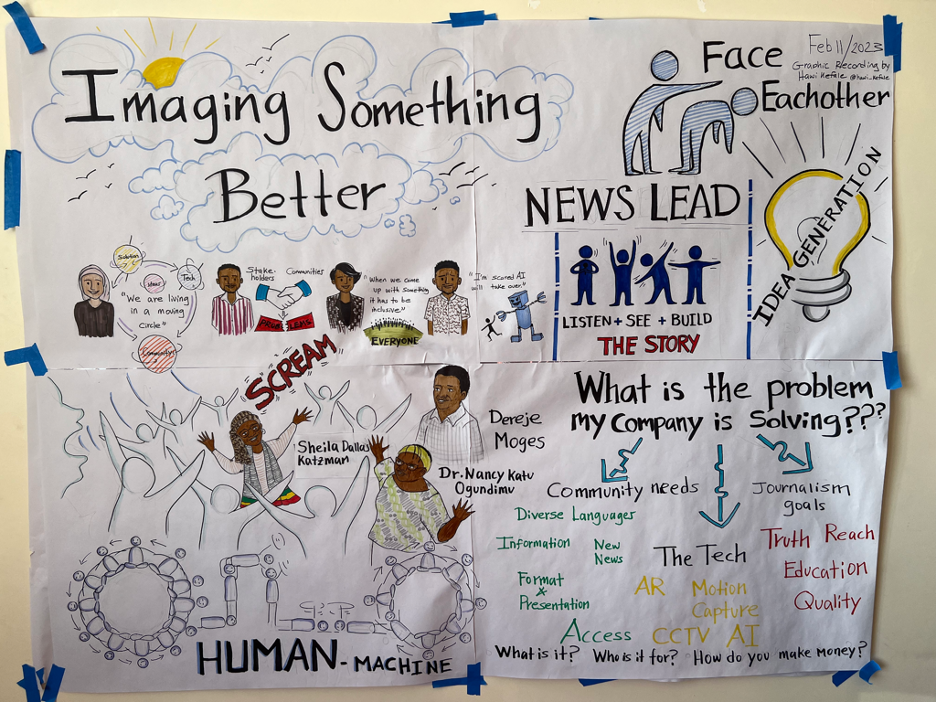 Imaging Something
Better
Face
Eachother
Feb 11/2023
Graphic Recording by
Hawi Kefale @hawi_kefale
NEWS LEAD
IDEA GENERATION
LISTEN + SEE + BUILD
THE STORY
Solution
Ideas
Tech
Community
"We are living
in a moving
circle"
Stake-
holders
Communities
PROBLEMS
"When we come
up with something
it has to be
inclusive."
EVERYONE
"I'm scared AI
will take over."
SCREAM
Sheila Dallas
Katzman
Dereje
Moges
Dr. Nancy Katu
Ogundimu
HUMAN - MACHINE
What is the problem
my Company is Solving???
Community needs
Diverse Languages
Information
New
News
Format
&
Presentation
Access
The Tech
AR
Motion
Capture
CCTV AI
Journalism
goals
Truth Reach
Education
Quality
What is it? Who is it for? How do you make money?